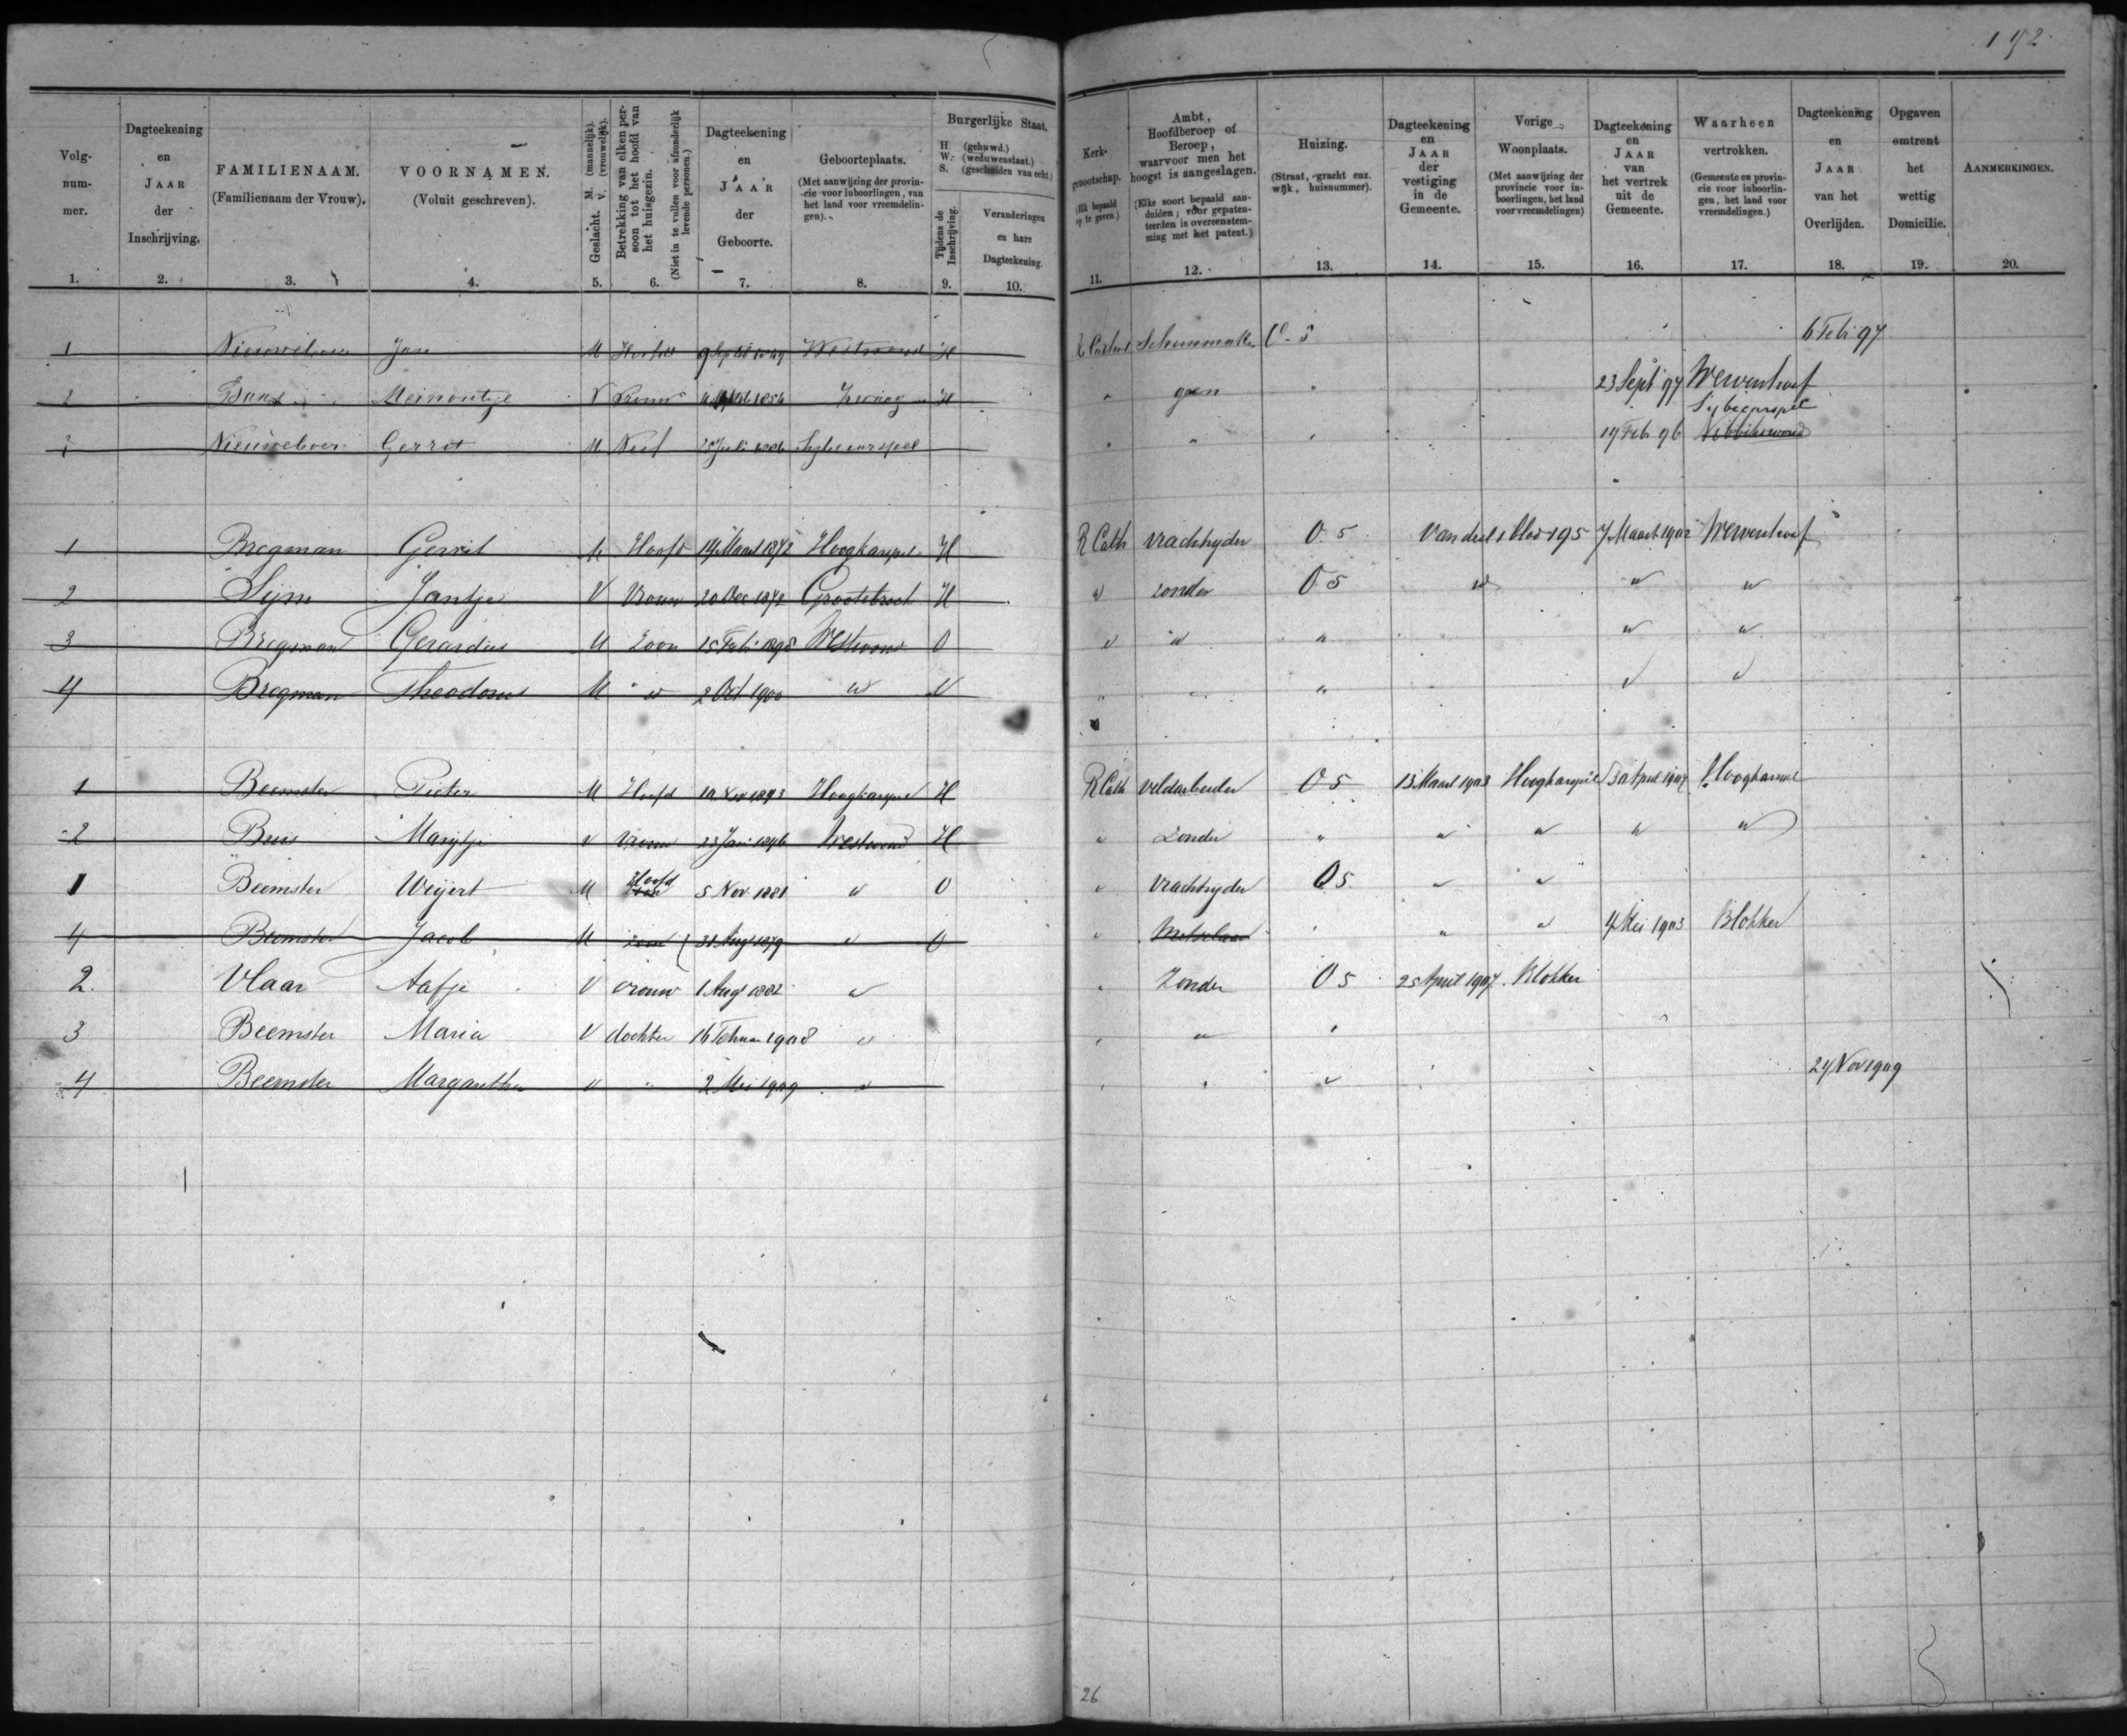 192
Volgnummer.
Dagteekening en JAAR der Inschrijving.
FAMILIENAAM. (Familienaam der Vrouw).
VOORNAMEN. (Voluit geschreven).
Geslacht. M. (mannelijk). V. (vrouwelijk).
Betrekking van elken persoon tot het hoofd van het huisgezin. (Niet in te vullen voor afzonderlijk levende personen.)
Dagteekening en JAAR der Geboorte.
Geboorteplaats. (Met aanwijzing der provincie voor inboorlingen, van het land voor vreemdelingen).
Burgerlijke Staat.
H (gehuwd.) W. (weduwenstaat.) S. (gescheiden van echt.)
Tijdens de Inschrijving.
Veranderingen en hare Dagteekening.
Kerkgenootschap. (Elk bepaald op te geven.)
Ambt, Hoofdberoep of Beroep, waarvoor men het hoogst is aangeslagen. (Elke soort bepaald aanduiden; voor gepatenteerden in overeenstemming met het patent.)
Huizing. (Straat, gracht enz. wijk, huisnummer).
Dagteekening en JAAR der vestiging in de Gemeente.
Vorige Woonplaats. (Met aanwijzing der provincie voor inboorlingen, het land voor vreemdelingen)
Dagteekening en JAAR van het vertrek uit de Gemeente.
Waarheen vertrokken. (Gemeente en provincie voor inboorlingen, het land voor vreemdelingen.)
Dagteekening en JAAR van het Overlijden.
Opgaven omtrent het wettig Domicilie.
AANMERKINGEN.
1. 2. 3. 4. 5. 6. 7. 8. 9. 10. 11. 12. 13. 14. 15. 16. 17. 18. 19. 20.
1 Nieuweboer Jan M Westwoud H Schoenmaker O 5 6 Feb 97
2 V Vrouw Zwaag H " geen " 23 Sept 97 Wervenhoof
Nieuweboer Gerrit M Neef Sijbecarspel " " " 19 Feb 96 Sijbecarspel Nibbikswoud
1 Bregman Gerrit M Hoofd 14 Maart 1872 Hoogkarspel H R Cath vrachtryder O 5 Van deel 1 blad 195 7 Maart 1902 Wervenhoof
2 Sijm Jantje V Vrouw 20 Dec 1872 Grootebroek H " zonder O 5 " " "
3 Bregman Gerardus M Zoon 15 Feb 1898 Westwoud O " " " " "
4 Bregman Theodorus M " 2 Oct 1900 " " " " " " "
1 Beemster Pieter M Hoofd Hoogkarspel H R Cath veldarbeider O 5 13 Maart 1903 Hoogkarspel 30 April 1907 Hoogkarspel
2 Marijtje V vrouw Westwoud H " Zonder " " " " "
1 Beemster Weijert M Hoofd zoon 5 Nov 1881 " O " Vrachtryder O 5 " "
4 Beemster Jacob M zoon 31 Aug 1879 " O " Metselaar " " " 4 Mei 1903 Blokker
2. Vlaar Aafje V vrouw 1 Aug 1882 " " Zonder O 5 25 April 1907 Blokker
3 Beemster Maria V dochter 16 Februari 1908 " " " "
4 Beemster Margaretha " " 2 Mei 1909 " " " " 24 Nov 1909
26